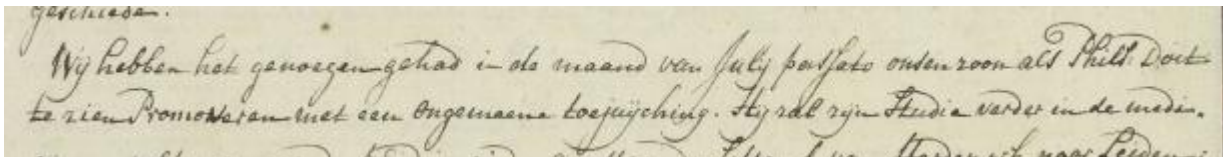 geschiede.
Wij hebben het genoegen gehad in de maand van Julij passato onsen zoon als Phils. Doct
te zien Promoveren met een ongemeene toejuijching. Hij zal zijn Studie verder in de medi.
naar Leijden